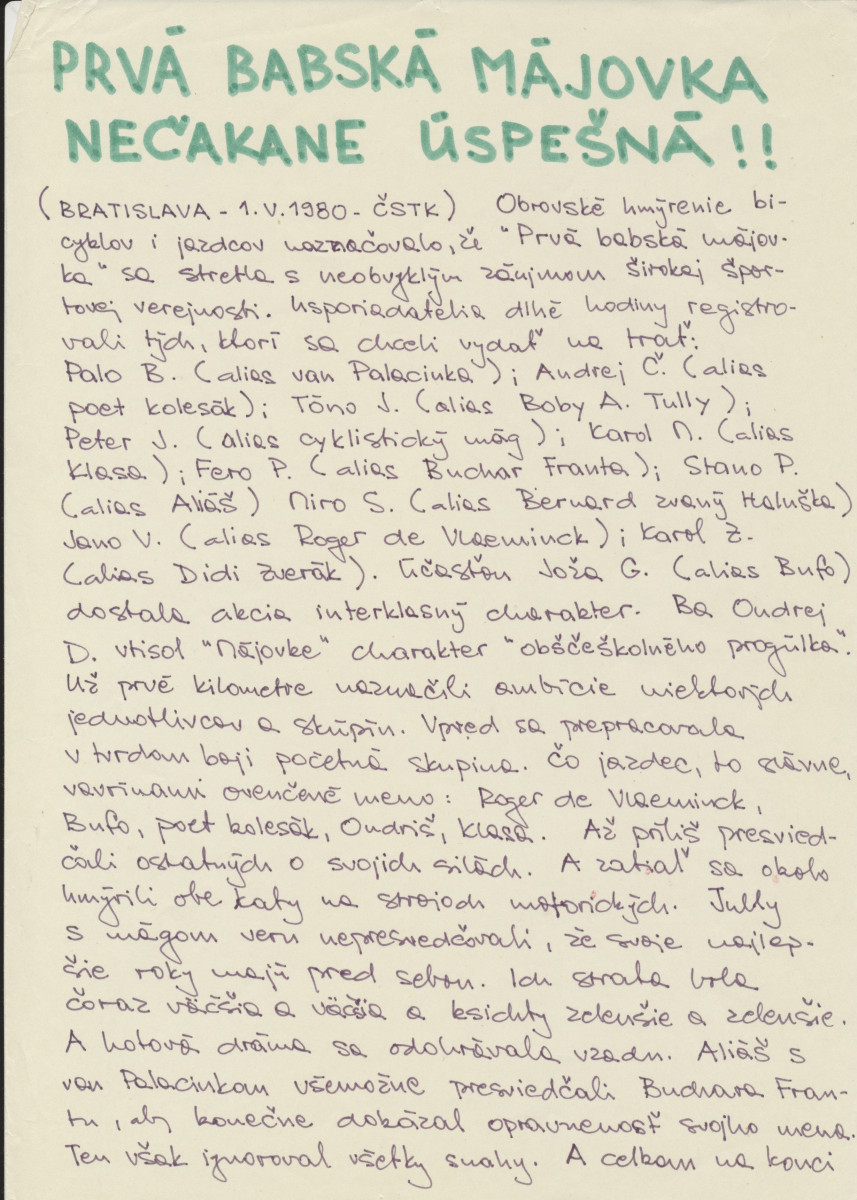 PRVÁ BABSKÁ MÁJOVKA
NEČAKANE ÚSPEŠNÁ!!
(BRATISLAVA - 1.V.1980 - ČSTK) Obrovské hmýrenie bi-
cyklov i jazdcov naznačovalo, že "Prvá babská májov-
ka" sa stretla s neobvyklým záujmom širokej špor-
tovej verejnosti. Usporiadatelia dlhé hodiny registro-
vali tých, ktorí sa chceli vydať na trať:
Palo B. (alias van Palacinka); Andrej Č. (alias
poet kolesák); Tóno J. (alias Boby A. Tully);
Peter J. (alias cyklistický mág); Karol M. (alias
Klasa); Fero P. (alias Buchar Franta); Stano P.
(alias Aliáš) Miro S. (alias Bernard zvaný Haluška)
Jano V. (alias Roger de Vlaeminck); Karol Z.
(alias Didi Zverák). Účasťou Joža G. (alias Bufo)
dostala akcia interklasný charakter. Ba Ondrej
D. vtisol "Májovke" charakter "obščeškolného progúlka".
Už prvé kilometre naznačili ambície niektorých
jednotlivcov a skúpín. Vpred sa prepracovala
v tvrdom boji početná skupina. Čo jazdec, to slávne,
vavrínami ovenčené meno: Roger de Vlaeminck,
Bufo, poet kolesák, Ondriš, Klasa. Až príliš presvied-
čali ostatných o svojich silách. A zatiaľ sa okolo
hmýrili obe Katy na strojoch motorických. Tully
s mágom veru nepresvedčovali, že svoje najlep-
šie roky majú pred sebou. Ich strata bola
čoraz väčšia a väčšia a ksichty zelenšie a zelenšie.
A hotová dráma sa odohrávala vzadu. Aliáš s
van Palacinkom všemožne presviedčali Buchara Fran-
tu, aby konečne dokázal opravnenosť svojho mena.
Ten však ignoroval všetky snahy. A celkom na konci